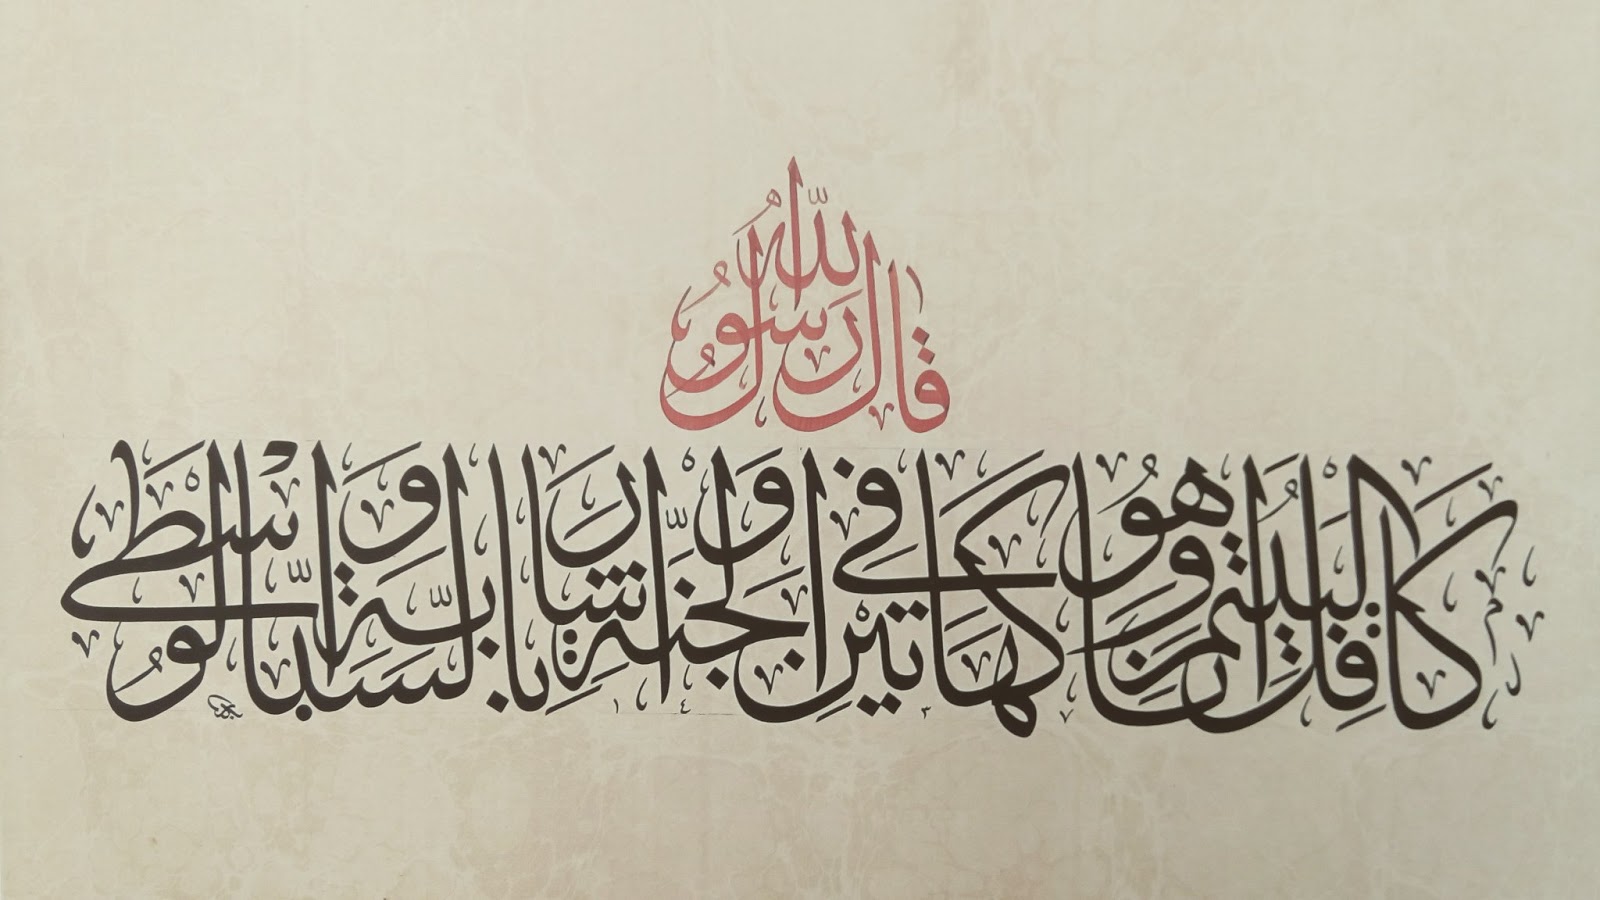 قال رسول الله
كافل اليتيم أنا وهو كهاتين في الجنة وأشار بالسبابة والوسطى
١٤٣٧